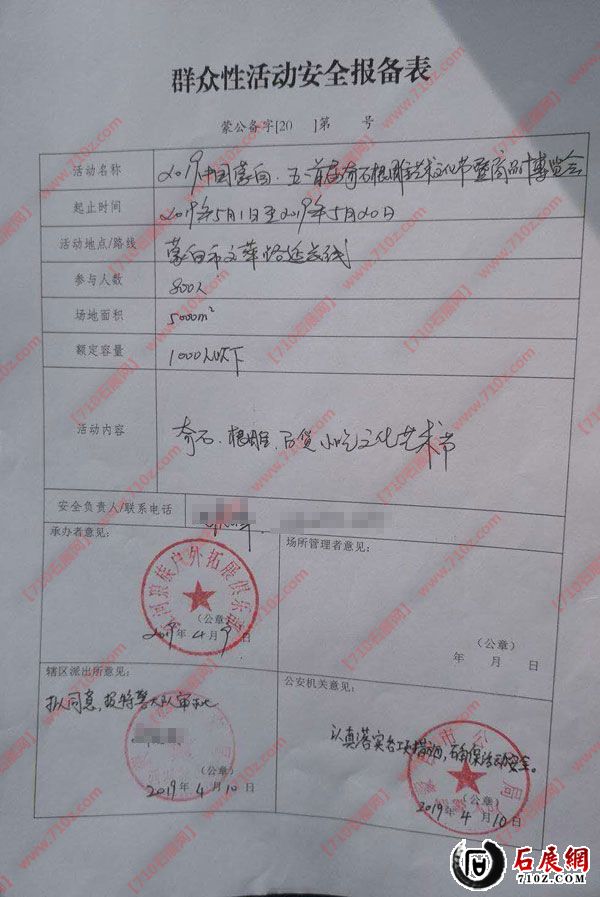 群众性活动安全报备表
蒙公备字[20 ]第 号
活动名称 2019中国蒙自·五一首届奇石根雕艺术文化节暨商品博览会
起止时间 2019年5月1日至2019年5月20日
活动地点/路线 蒙自市文萃路延长线
参与人数 800人
场地面积 5000m²
额定容量 1000人以下
活动内容 奇石、根雕、百货小吃文化艺术节
安全负责人/联系电话
承办者意见:
户外拓展俱乐部
(公章)
2019年4月9日
场所管理者意见:
(公章)
年 月 日
辖区派出所意见:
拟同意,报特警大队审批
(公章)
2019年4月10日
公安机关意见:
认真落实各项措施,确保活动安全。
市公
局
(公章)
2019年4月10日
[710石展网] www.710z.com
石展網
710Z.COM